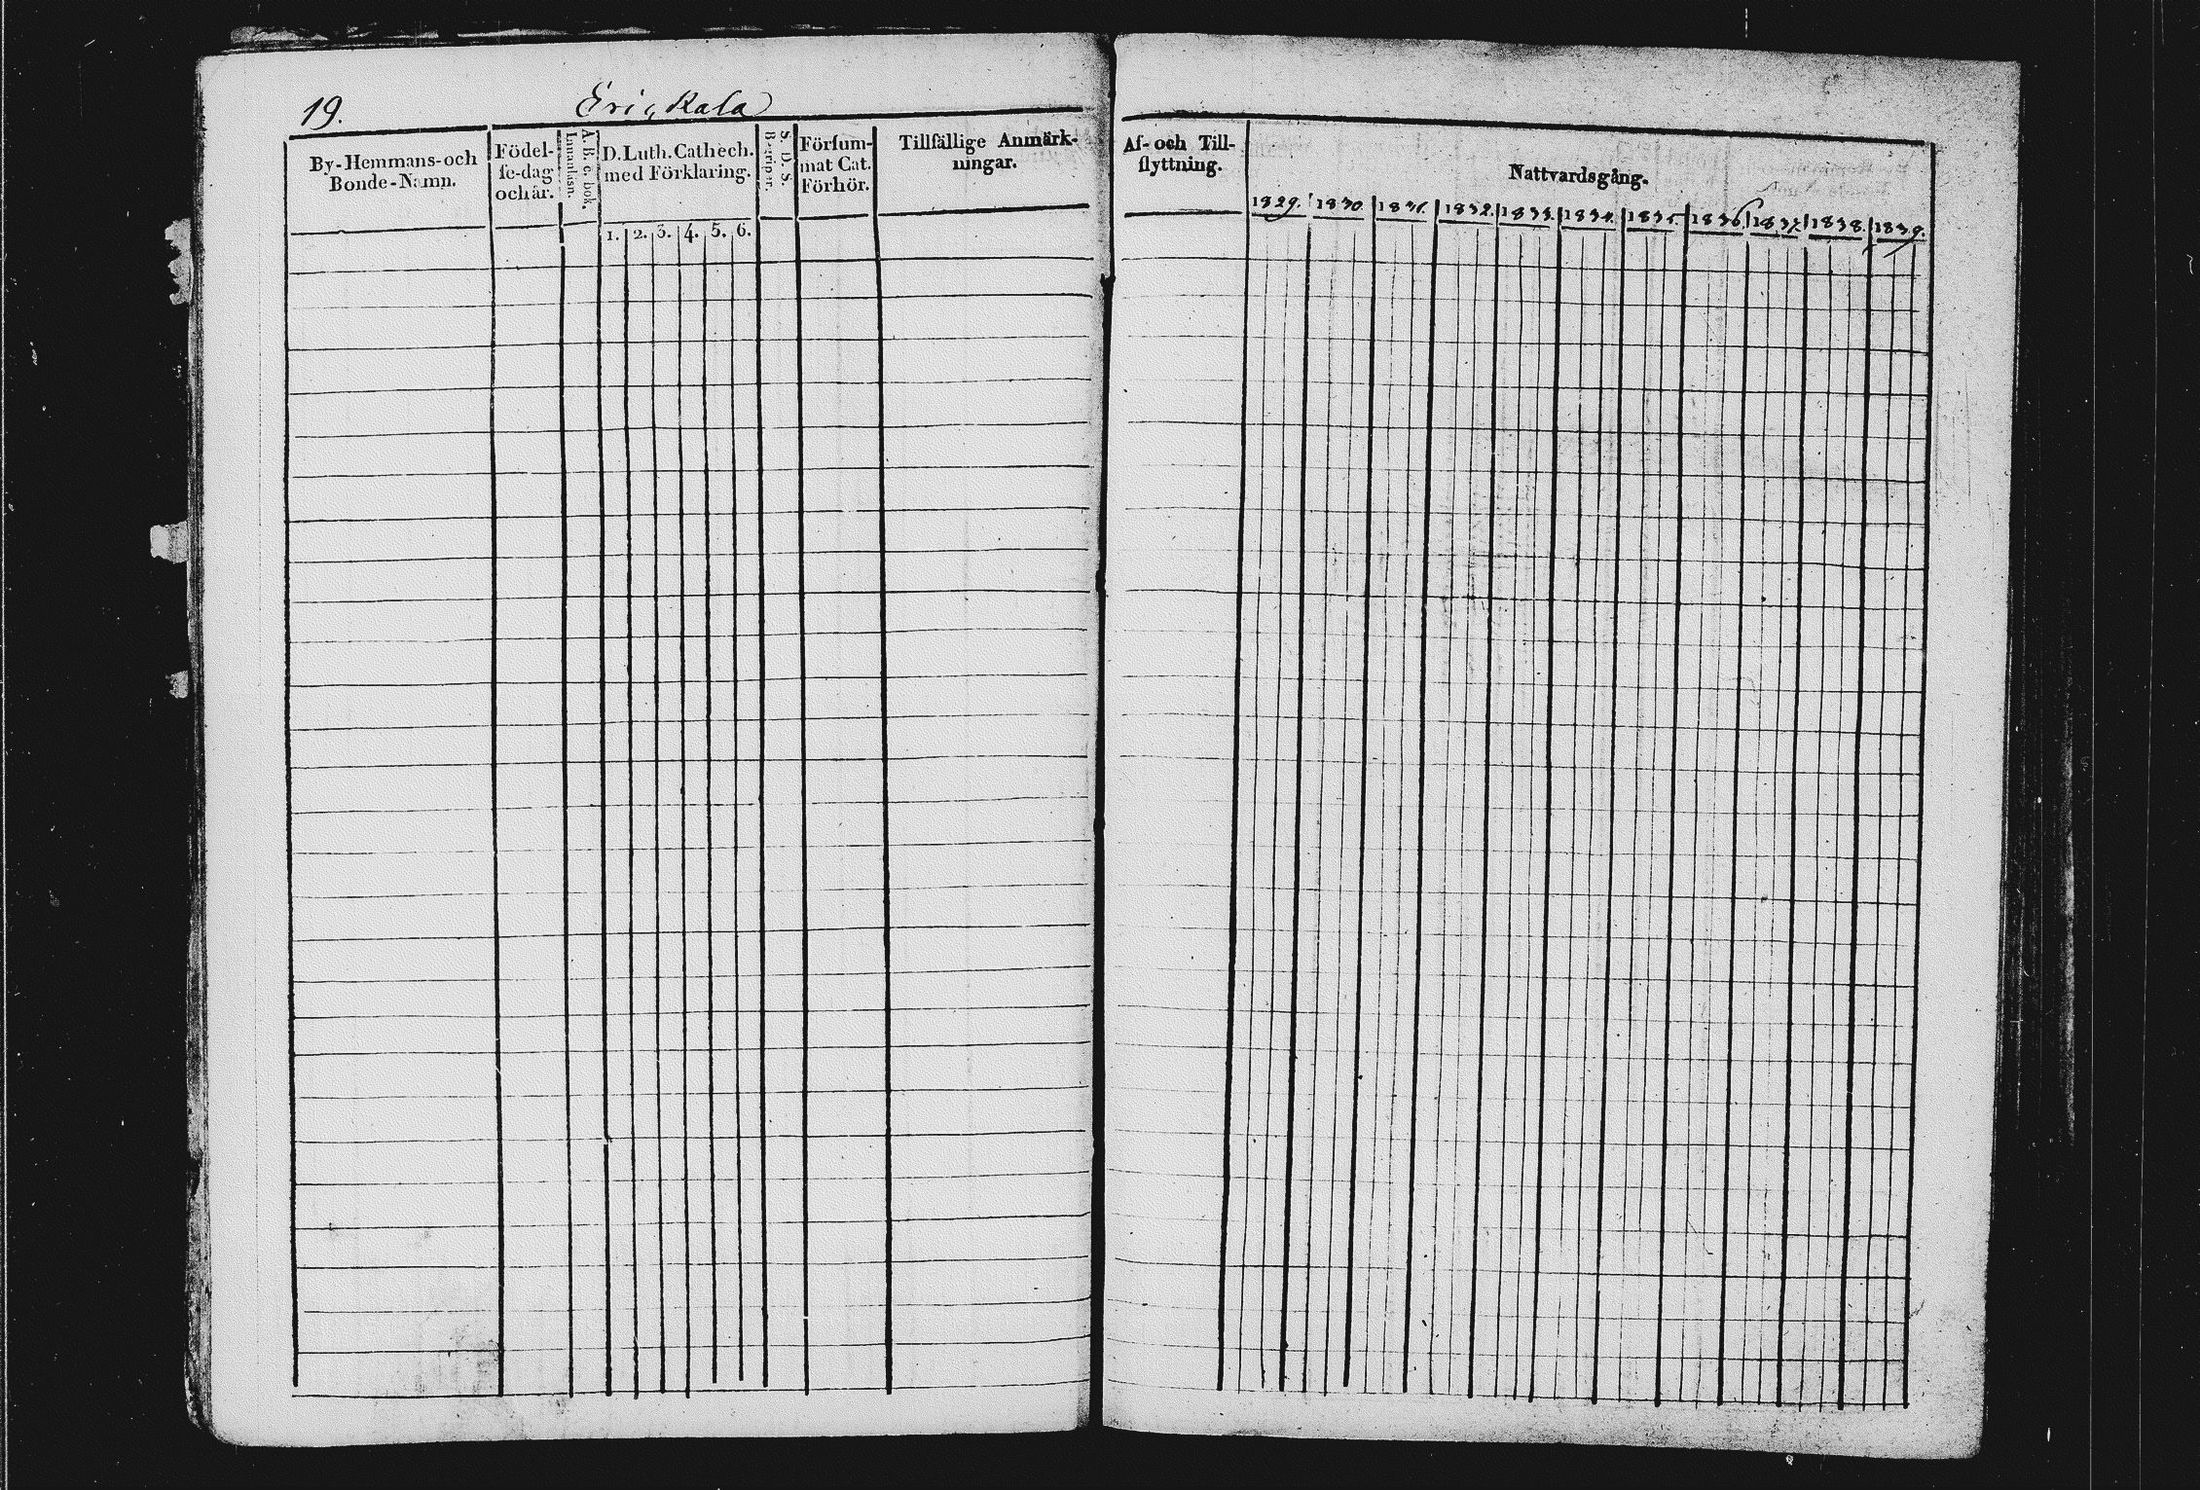 19.
Erickala
By-Hemmans-och
Bonde-Namn.
Födel-
se-dag
och år.
A. B. c. bok.
Innanläsn.
D. Luth. Cathech.
med Förklaring.
1. 2. 3. 4. 5. 6.
S. D. S.
Begriper.
Försum-
mat Cat.
Förhör.
Tillfällige Anmärk-
ningar.
Af- och Till-
flyttning.
Nattvardsgång.
1829. 1830. 1831. 1832. 1833. 1834. 1835. 1836. 1837. 1838. 1839.